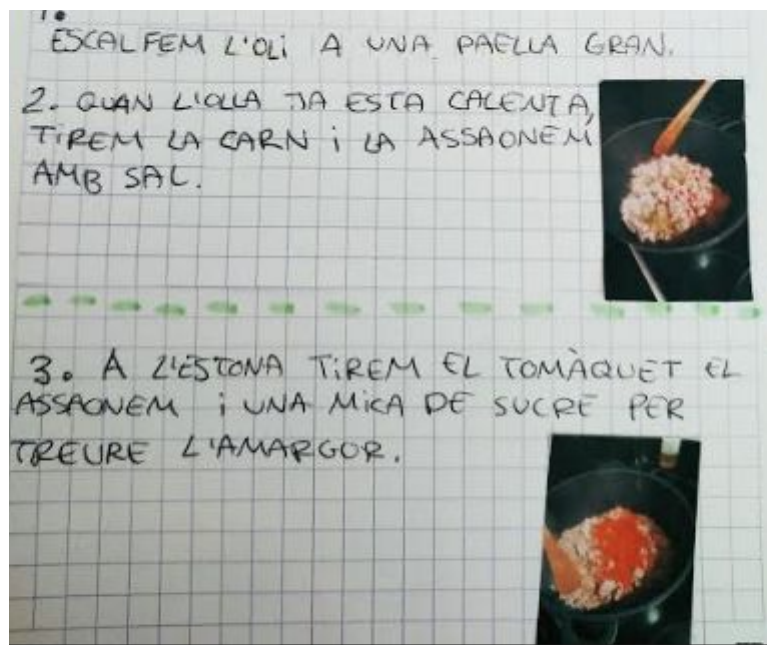 1.
ESCALFEM L'OLI A UNA PAELLA GRAN.
2. QUAN L'OLLA JA ESTA CALENTA,
TIREM LA CARN i LA ASSAONEM
AMB SAL.
3. A L'ESTONA TIREM EL TOMÀQUET EL
ASSAONEM i UNA MICA DE SUCRE PER
TREURE L'AMARGOR.